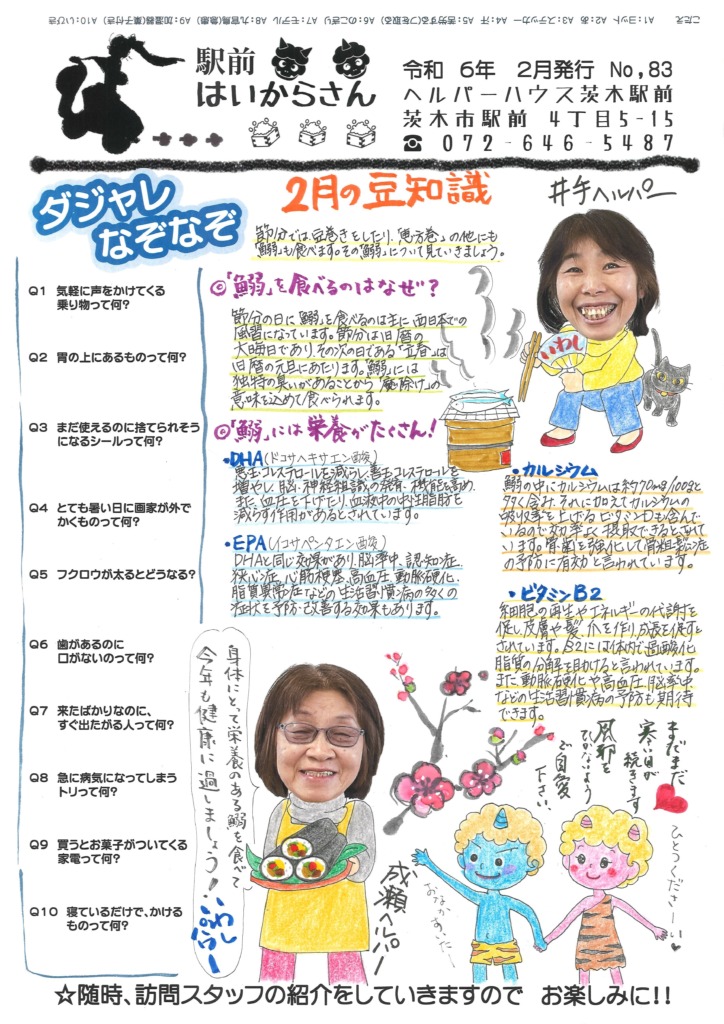 こたえ A1：ヨット A2：あ A3：ステッカー A4：汗 A5：苦労する(フを取る) A6：のこぎり A7：モデル A8：九官鳥(急患) A9：加湿器(菓子付き) A10：いびき
駅前
はいからさん
令和 6年 2月発行 No,83
ヘルパーハウス茨木駅前
茨木市駅前 4丁目5-15
☎ 072-646-5487
ダジャレ
なぞなぞ
Q1 気軽に声をかけてくる
乗り物って何?
Q2 胃の上にあるものって何?
Q3 まだ使えるのに捨てられそう
になるシールって何?
Q4 とても暑い日に画家が外で
かくものって何?
Q5 フクロウが太るとどうなる?
Q6 歯があるのに
口がないのって何?
Q7 来たばかりなのに、
すぐ出たがる人って何?
Q8 急に病気になってしまう
トリって何?
Q9 買うとお菓子がついてくる
家電って何?
Q10 寝ているだけで、かける
ものって何?
2月の豆知識
節分では、豆巻きをしたり、「恵方巻」の他にも
「鰯」も食べます。その「鰯」について見ていきましょう。
◎「鰯」を食べるのはなぜ?
節分の日に「鰯」を食べるのは主に西日本での
風習になっています。節分は旧暦の
大晦日であり、その次の日である「立春」は
旧暦の元旦にあたります。「鰯」には
独特の臭いがあることから「魔除け」の
意味を込めて食べられます。
◎「鰯」には栄養がたくさん!
・DHA(ドコサヘキサエン酸)
悪玉コレステロールを減らし、善玉コレステロールを
増やし、脳・神経組織の発育、機能を高め、
また、血圧を下げたり、血液中の中性脂肪を
減らす作用があるとされています。
・EPA(イコサペンタエン酸)
DHAと同じ効果があり、脳卒中、認知症、
狭心症、心筋梗塞、高血圧、動脈硬化、
脂質異常症などの生活習慣病の多くの
症状を予防・改善する効果もあります。
井手ヘルパー
いわし
・カルシウム
鰯の中にカルシウムは約70mg/100gと
多く含み、それに加えてカルシウムの
吸収率を上げるビタミンDも含んで
いるので効率よく摂取できるとされて
います。骨歯を強化して骨粗鬆症
の予防に有効と言われています。
・ビタミンB2
細胞の再生やエネルギーの代謝を
促し、皮膚や髪、爪を作り、成長を促すと
されています。B2には体内で過酸化
脂質の分解を助けると言われています。
また、動脈硬化や高血圧、脳卒中
などの生活習慣病の予防も期待
できます。
身体にとって栄養のある鰯を食べて
今年も健康に過ごしましょう!
成瀬ヘルパー
まだまだ
寒い日が
続きます
風邪を
ひかないよう
ご自愛
下さい。
おなかすいたー
ひとつくださーい
☆随時、訪問スタッフの紹介をしていきますので お楽しみに!!